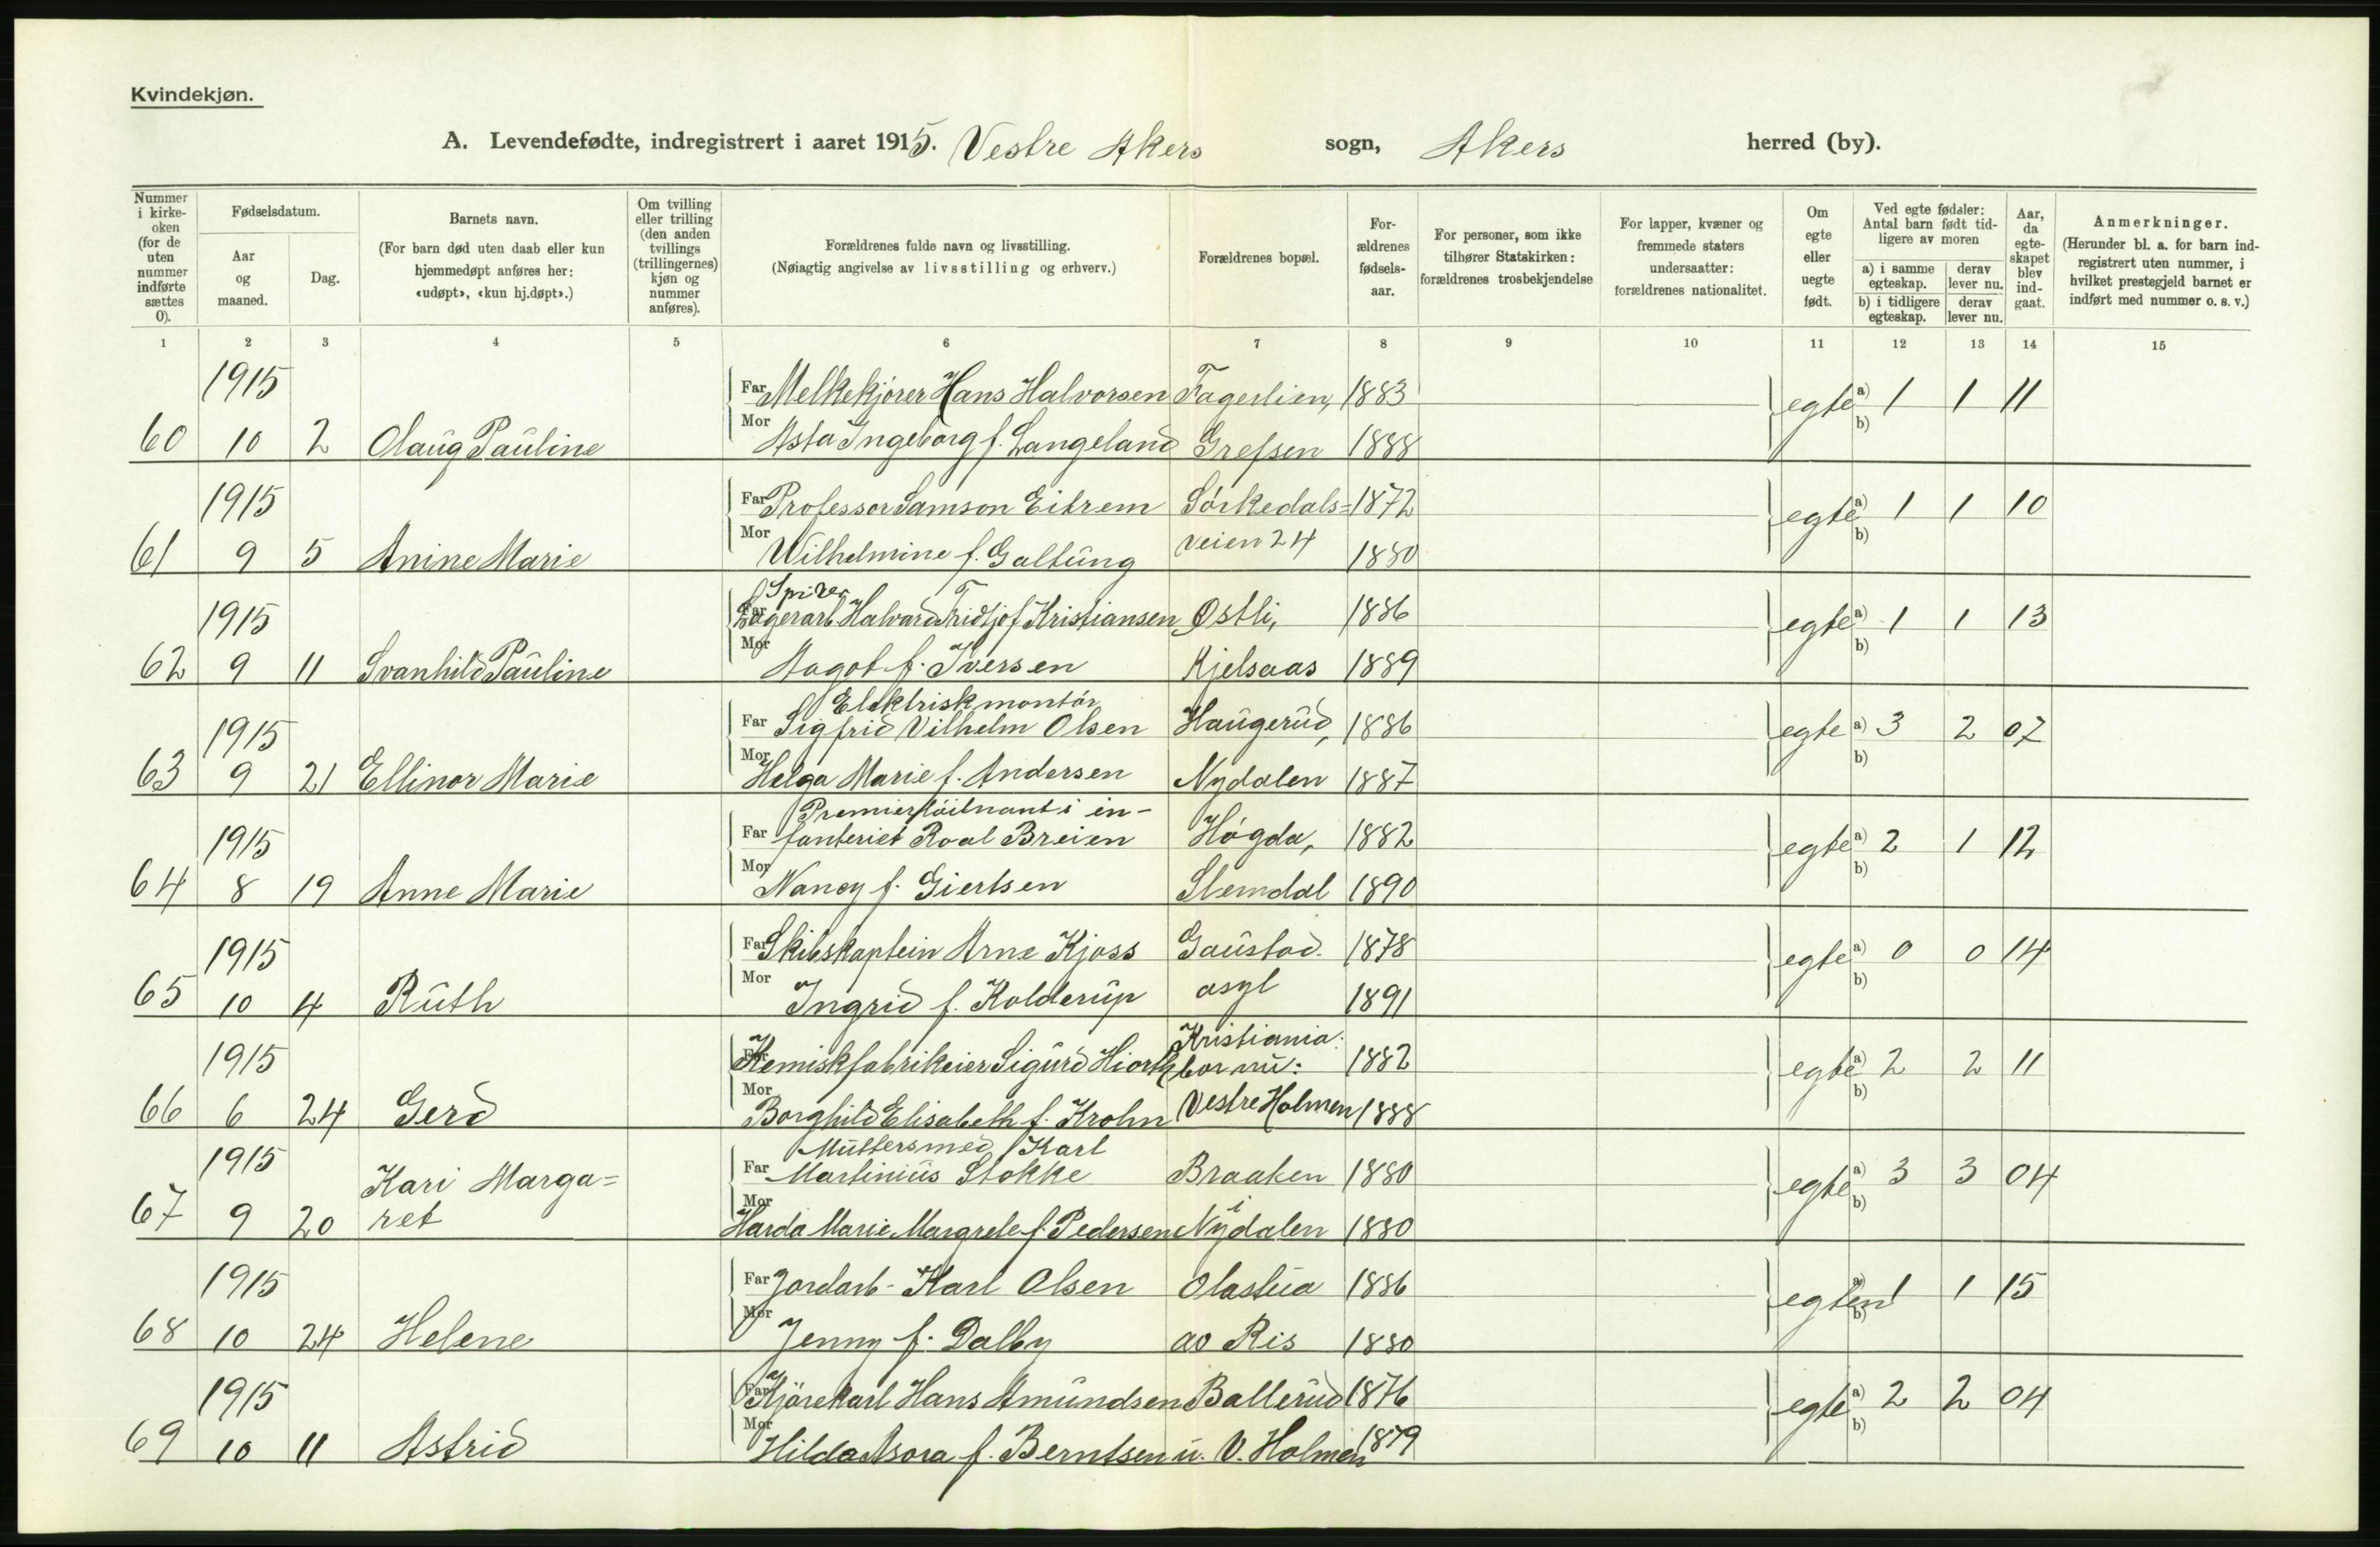 Kvindekjøn.
A. Levendefødte, indregistrert i aaret 1915. Vestre Akers sogn, Akers herred (by).
Nummer i kirkeoken (for de uten nummer indførte sættes 0).
Fødselsdatum.
Aar og maaned.
Dag.
Barnets navn.
(For barn død uten daab eller kun hjemmedøpt anføres her: «udøpt», «kun hj.døpt».)
Om tvilling eller trilling (den anden tvillings (trillingernes) kjøn og nummer anføres).
Forældrenes fulde navn og livsstilling.
(Nøiagtig angivelse av livsstilling og erhverv.)
Forældrenes bopæl.
Forældrenes fødselsaar.
For personer, som ikke tilhører Statskirken: forældrenes trosbekjendelse
For lapper, kvæner og fremmede staters undersaatter: forældrenes nationalitet.
Om egte eller uegte født.
Ved egte fødsler: Antal barn født tidligere av moren
a) i samme egteskap. derav lever nu.
b) i tidligere egteskap. derav lever nu.
Aar, da egteskapet blev indgaat.
Anmerkninger.
(Herunder bl. a. for barn indregistrert uten nummer, i hvilket prestegjeld barnet er indført med nummer o. s. v.)
1 2 3 4 5 6 7 8 9 10 11 12 13 14 15
1915 Far Melkekjører Hans Halvorsen Fagerlien, 1883 egte a) 1 1 11
60 10 2 Olaug Pauline Mor Asta Ingeborg f. Langeland Grefsen 1888 b)
1915 Far Professor Samson Eitrem Sørkedals= 1872 egte a) 1 1 10
61 9 5 Anine Marie Mor Wilhelmine f. Galtung veien 24 1880 b)
Spiker
1915 Far Lagerarb. Halvard Fridtjof Kristiansen Østli, 1886 egte a) 1 1 13
62 9 11 Svanhild Pauline Mor Aagot f. Iversen Kjelsaas 1889 b)
Elektrisk montør
1915 Far Sigfrid Vilhelm Olsen Haugerud, 1886 egte a) 3 2 07
63 9 21 Ellinor Marie Mor Helga Marie f. Andersen Nydalen 1887 b)
Premierløitnant i in-
1915 Far fanteriet Roal Breien Høgda, 1882 egte a) 2 1 12
64 8 19 Anne Marie Mor Nancy f. Giertsen Slemdal 1890 b)
1915 Far Skibskaptein Arne Kjoss Gaustad. 1878 egte a) 0 0 14
65 10 4 Ruth Mor Ingrid f. Kolderup asyl 1891 b)
Kristiania:
1915 Far Kemiskfabrikeier Sigurd Hiorth bor nu: 1882 egte a) 2 2 11
66 6 24 Gerd Mor Borghild Elisabeth f. Krohn Vestre Holmen 1888 b)
Muttersmed Karl
1915 Kari Marga= Far Martinius Stokke Braaken 1880 egte a) 3 3 04
67 9 20 ret Mor Harda Marie Margrete f. Pedersen i Nydalen 1880 b)
1915 Far Jordarb. Karl Olsen Olastua 1886 egte a) 1 1 15
68 10 24 Helene Mor Jenny f. Dalby av Ris 1880 b)
1915 Far Kjørekarl Hans Amundsen Ballerud 1876 egte a) 2 2 04
69 10 11 Astrid Mor Hilda Asora f. Berntsen u. V. Holmen 1879 b)